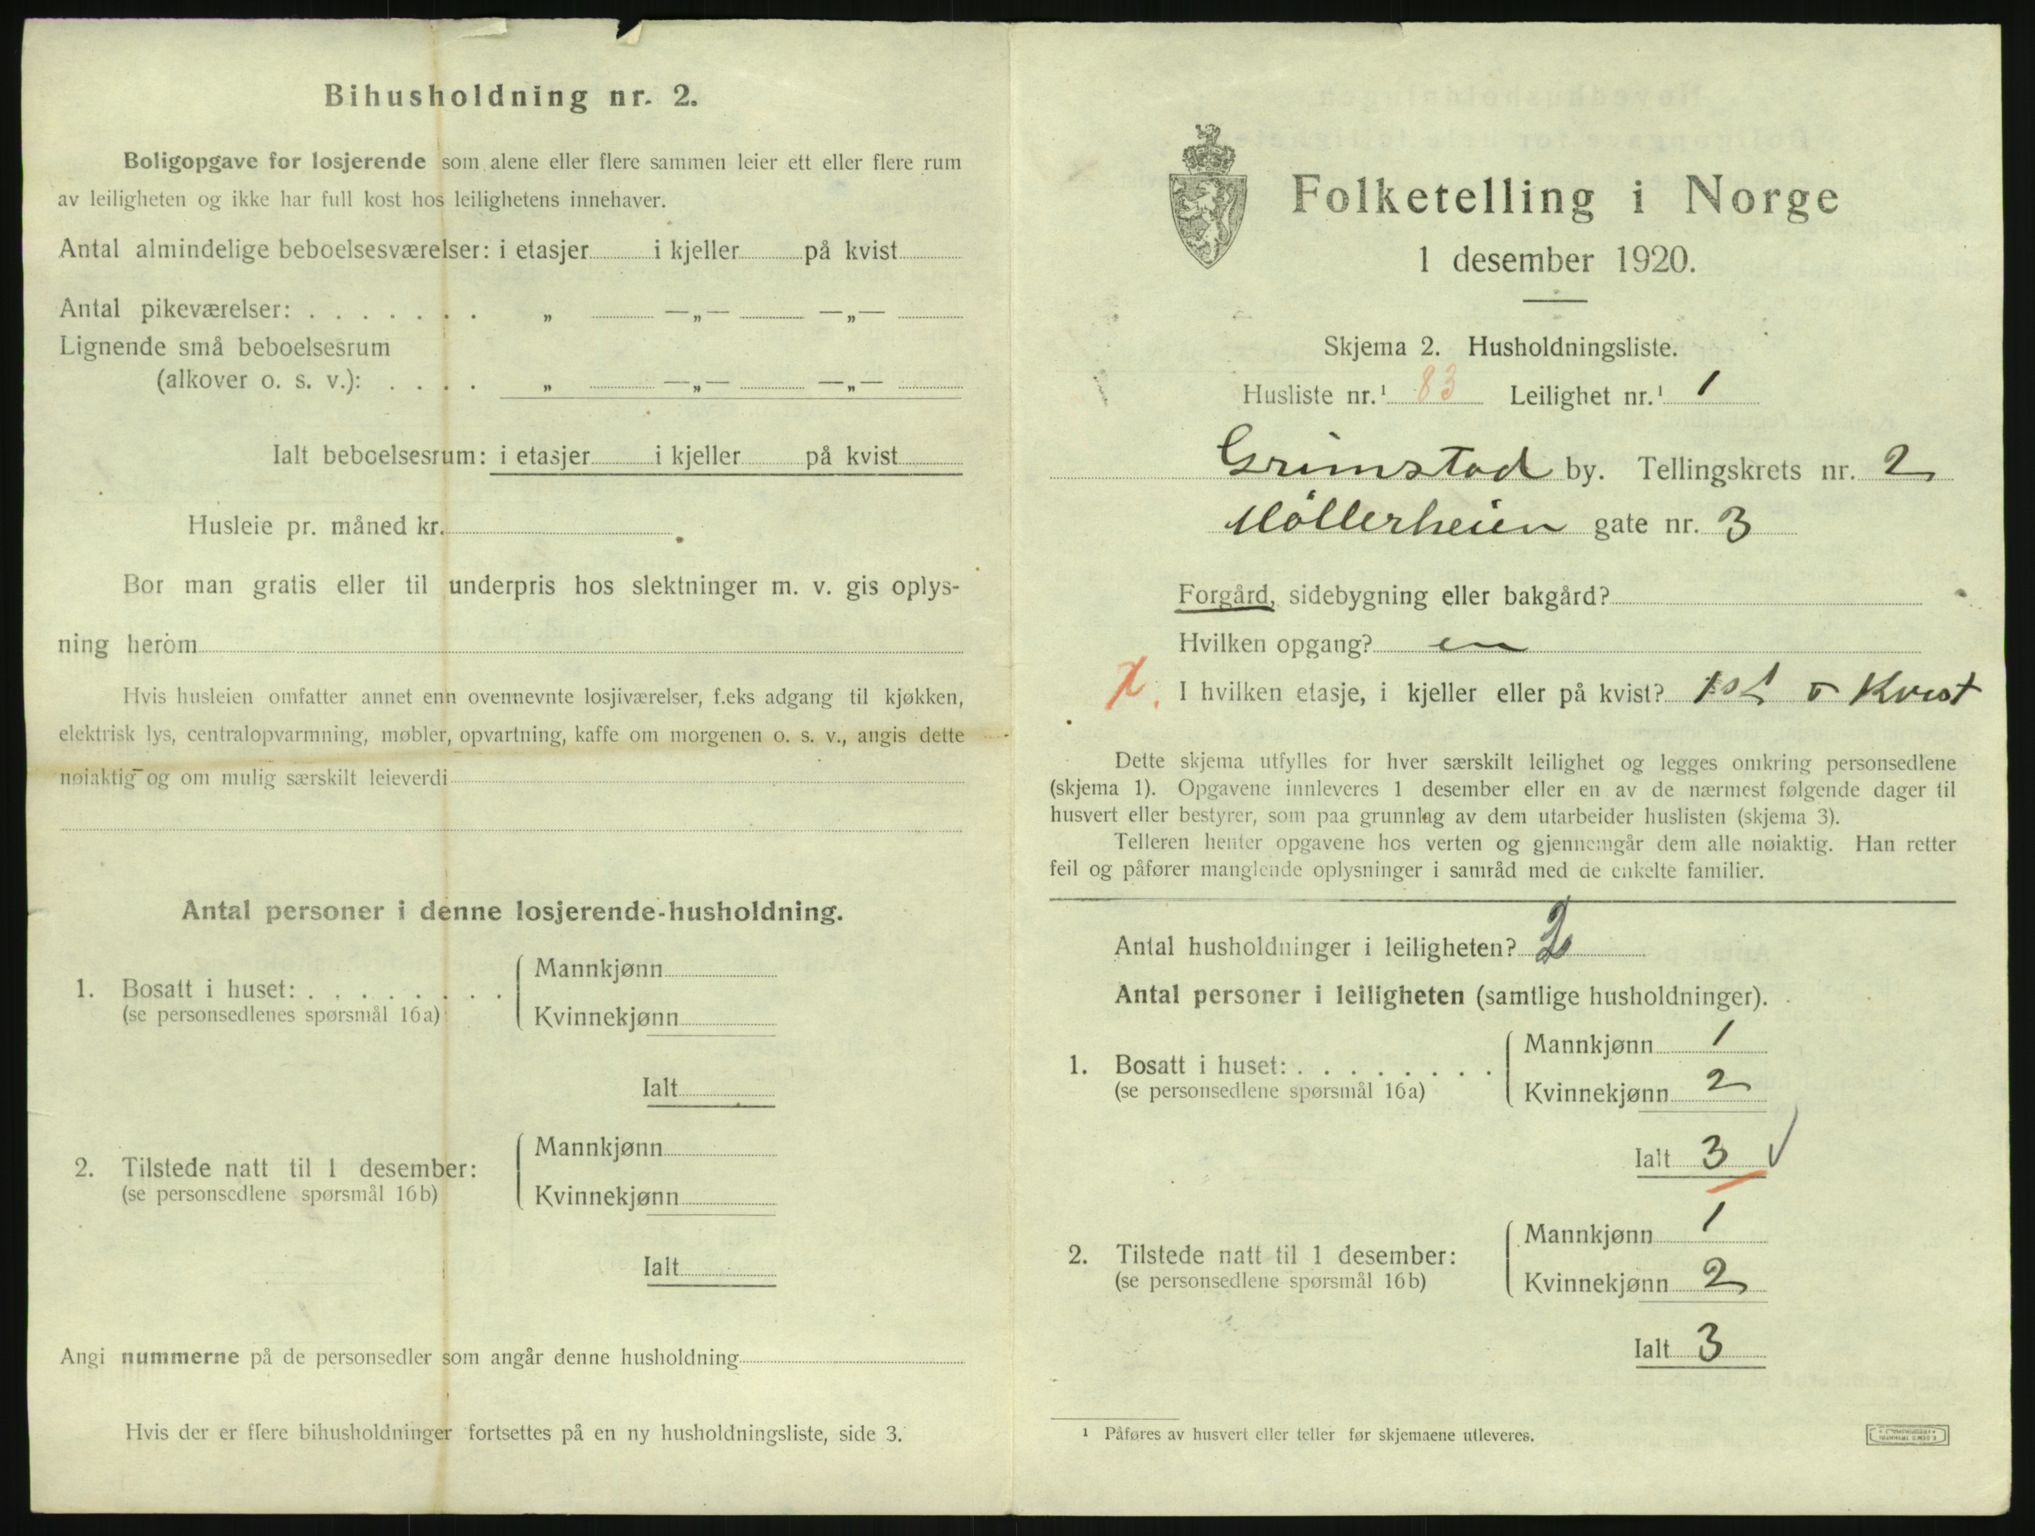 Bihusholdning nr. 2.
Boligopgave for losjerende som alene eller flere sammen leier ett eller flere rum
av leiligheten og ikke har full kost hos leilighetens innehaver.
Antal almindelige beboelsesværelser: i etasjer i kjeller på kvist
Antal pikeværelser: . . . . . . . „ —„— —„—
Lignende små beboelsesrum
(alkover o. s. v.): . . . . „ —„— —„—
Ialt beboelsesrum: i etasjer i kjeller på kvist
Husleie pr. måned kr.
Bor man gratis eller til underpris hos slektninger m. v. gis oplys-
ning herom
Hvis husleien omfatter annet enn ovennevnte losjiværelser, f.eks adgang til kjøkken,
elektrisk lys, centralopvarmning, møbler, opvartning, kaffe om morgenen o. s. v., angis dette
nøiaktig og om mulig særskilt leieverdi
Antal personer i denne losjerende-husholdning.
1. Bosatt i huset: . . . . . . . .
(se personsedlenes spørsmål 16a)
Mannkjønn
Kvinnekjønn
Ialt
2. Tilstede natt til 1 desember:
(se personsedlene spørsmål 16b)
Mannkjønn
Kvinnekjønn
Ialt
Angi nummerne på de personsedler som angår denne husholdning
Hvis der er flere bihusholdninger fortsettes på en ny husholdningsliste, side 3.
Folketelling i Norge
1 desember 1920.
Skjema 2. Husholdningsliste.
Husliste nr.¹ 83 Leilighet nr.¹ 1
Grimstad by. Tellingskrets nr. 2
Möllerheien gate nr. 3
Forgård, sidebygning eller bakgård?
Hvilken opgang? en
X. I hvilken etasje, i kjeller eller på kvist? 1st o Kvist
Dette skjema utfylles for hver særskilt leilighet og legges omkring personsedlene
(skjema 1). Opgavene innleveres 1 desember eller en av de nærmest følgende dager til
husvert eller bestyrer, som paa grunnlag av dem utarbeider huslisten (skjema 3).
Telleren henter opgavene hos verten og gjennemgår dem alle nøiaktig. Han retter
feil og påfører manglende oplysninger i samråd med de enkelte familier.
Antal husholdninger i leiligheten? 2
Antal personer i leiligheten (samtlige husholdninger).
1. Bosatt i huset: . . . . . . . .
(se personsedlene spørsmål 16a)
Mannkjønn 1
Kvinnekjønn 2
Ialt 3 ✓
2. Tilstede natt til 1 desember:
(se personsedlene spørsmål 16b)
Mannkjønn 1
Kvinnekjønn 2
Ialt 3
¹ Påføres av husvert eller teller før skjemaene utleveres.